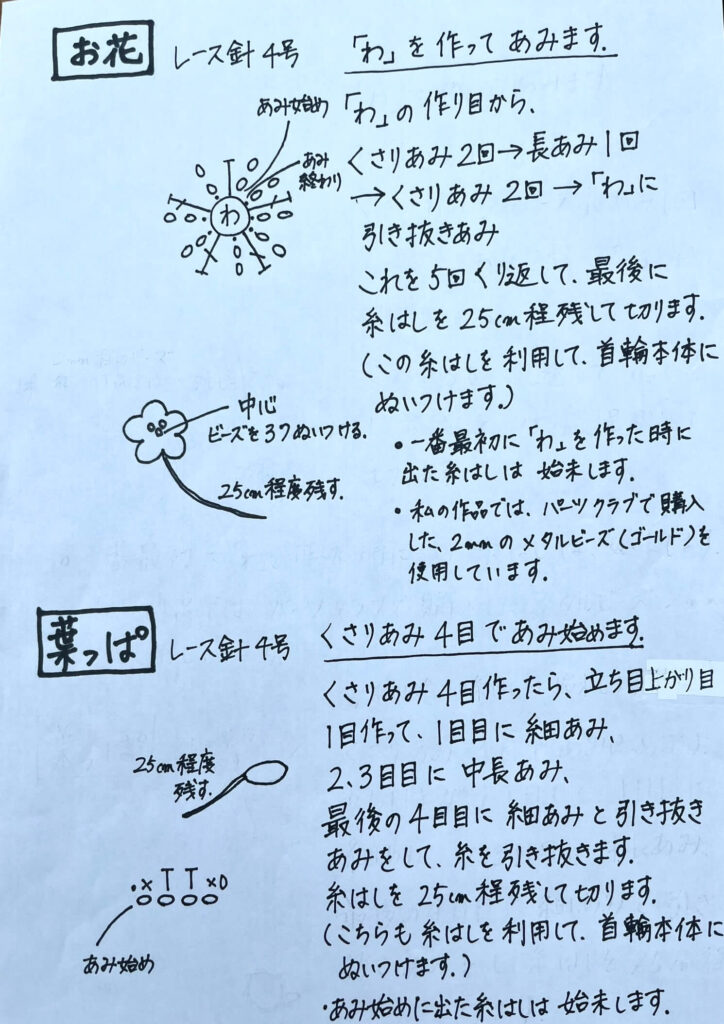 お花 レース針4号 「わ」を作ってあみます.
あみ始め
あみ
終わり
わ
「わ」の作り目から、
くさりあみ2回→長あみ1回
→くさりあみ2回→「わ」に
引き抜きあみ
これを5回くり返して、最後に
糸はしを25cm程残して切ります.
(この糸はしを利用して、首輪本体に
ぬいつけます.)
中心
ビーズを3つぬいつける.
25cm程度残す.
・一番最初に「わ」を作った時に
出た糸はしは 始末します.
・私の作品では、パーツクラブで購入
した、2mmのメタルビーズ(ゴールド)を
使用しています.
葉っぱ レース針4号 くさりあみ4目であみ始めます.
くさりあみ4目作ったら、立ち目上がり目
1目作って、1目目に細あみ、
2、3目目に中長あみ、
最後の4目目に細あみと引き抜き
あみをして、糸を引き抜きます.
糸はしを25cm程残して切ります.
(こちらも糸はしを利用して、首輪本体に
ぬいつけます.)
・あみ始めに出た糸はしは 始末します.
25cm程度
残す.
あみ始め